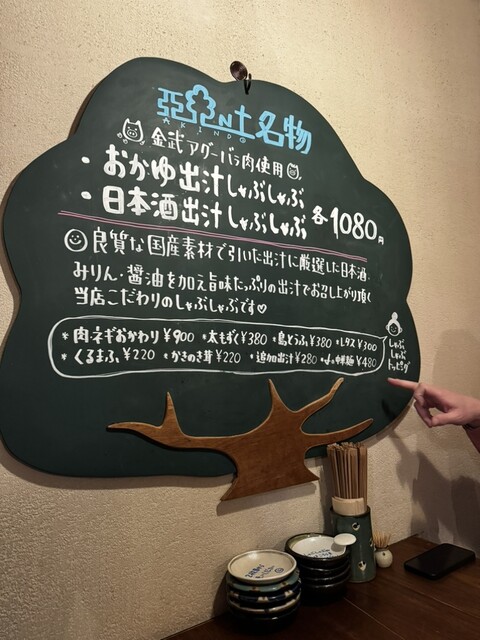 名物
AKINDO
金武アグーバラ肉使用
・おかゆ出汁しゃぶしゃぶ
・日本酒出汁しゃぶしゃぶ 各1080円
良質な国産素材で引いた出汁に厳選した日本酒、
みりん・醤油を加え旨味たっぷりの出汁でお召し上がり頂く
当店こだわりのしゃぶしゃぶです♡
*肉・ネギおかわり¥900 *太もずく¥380 *島とうふ¥380 *レタス¥300
*くるまふ¥220 *かきのき茸¥220 *追加出汁¥280 *〆の拌麺¥480
しゃぶ
しゃぶ
トッピング